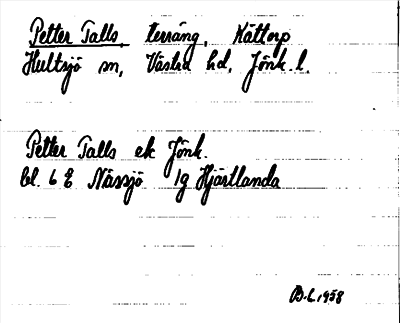 Petter Talls, terräng, Kättorp
Hultsjö sn, Västra hd, Jönk. l.
Petter Talls ek Jönk.
bl. 6 E Nässjö 1g Hjärtlanda
B.L. 1958